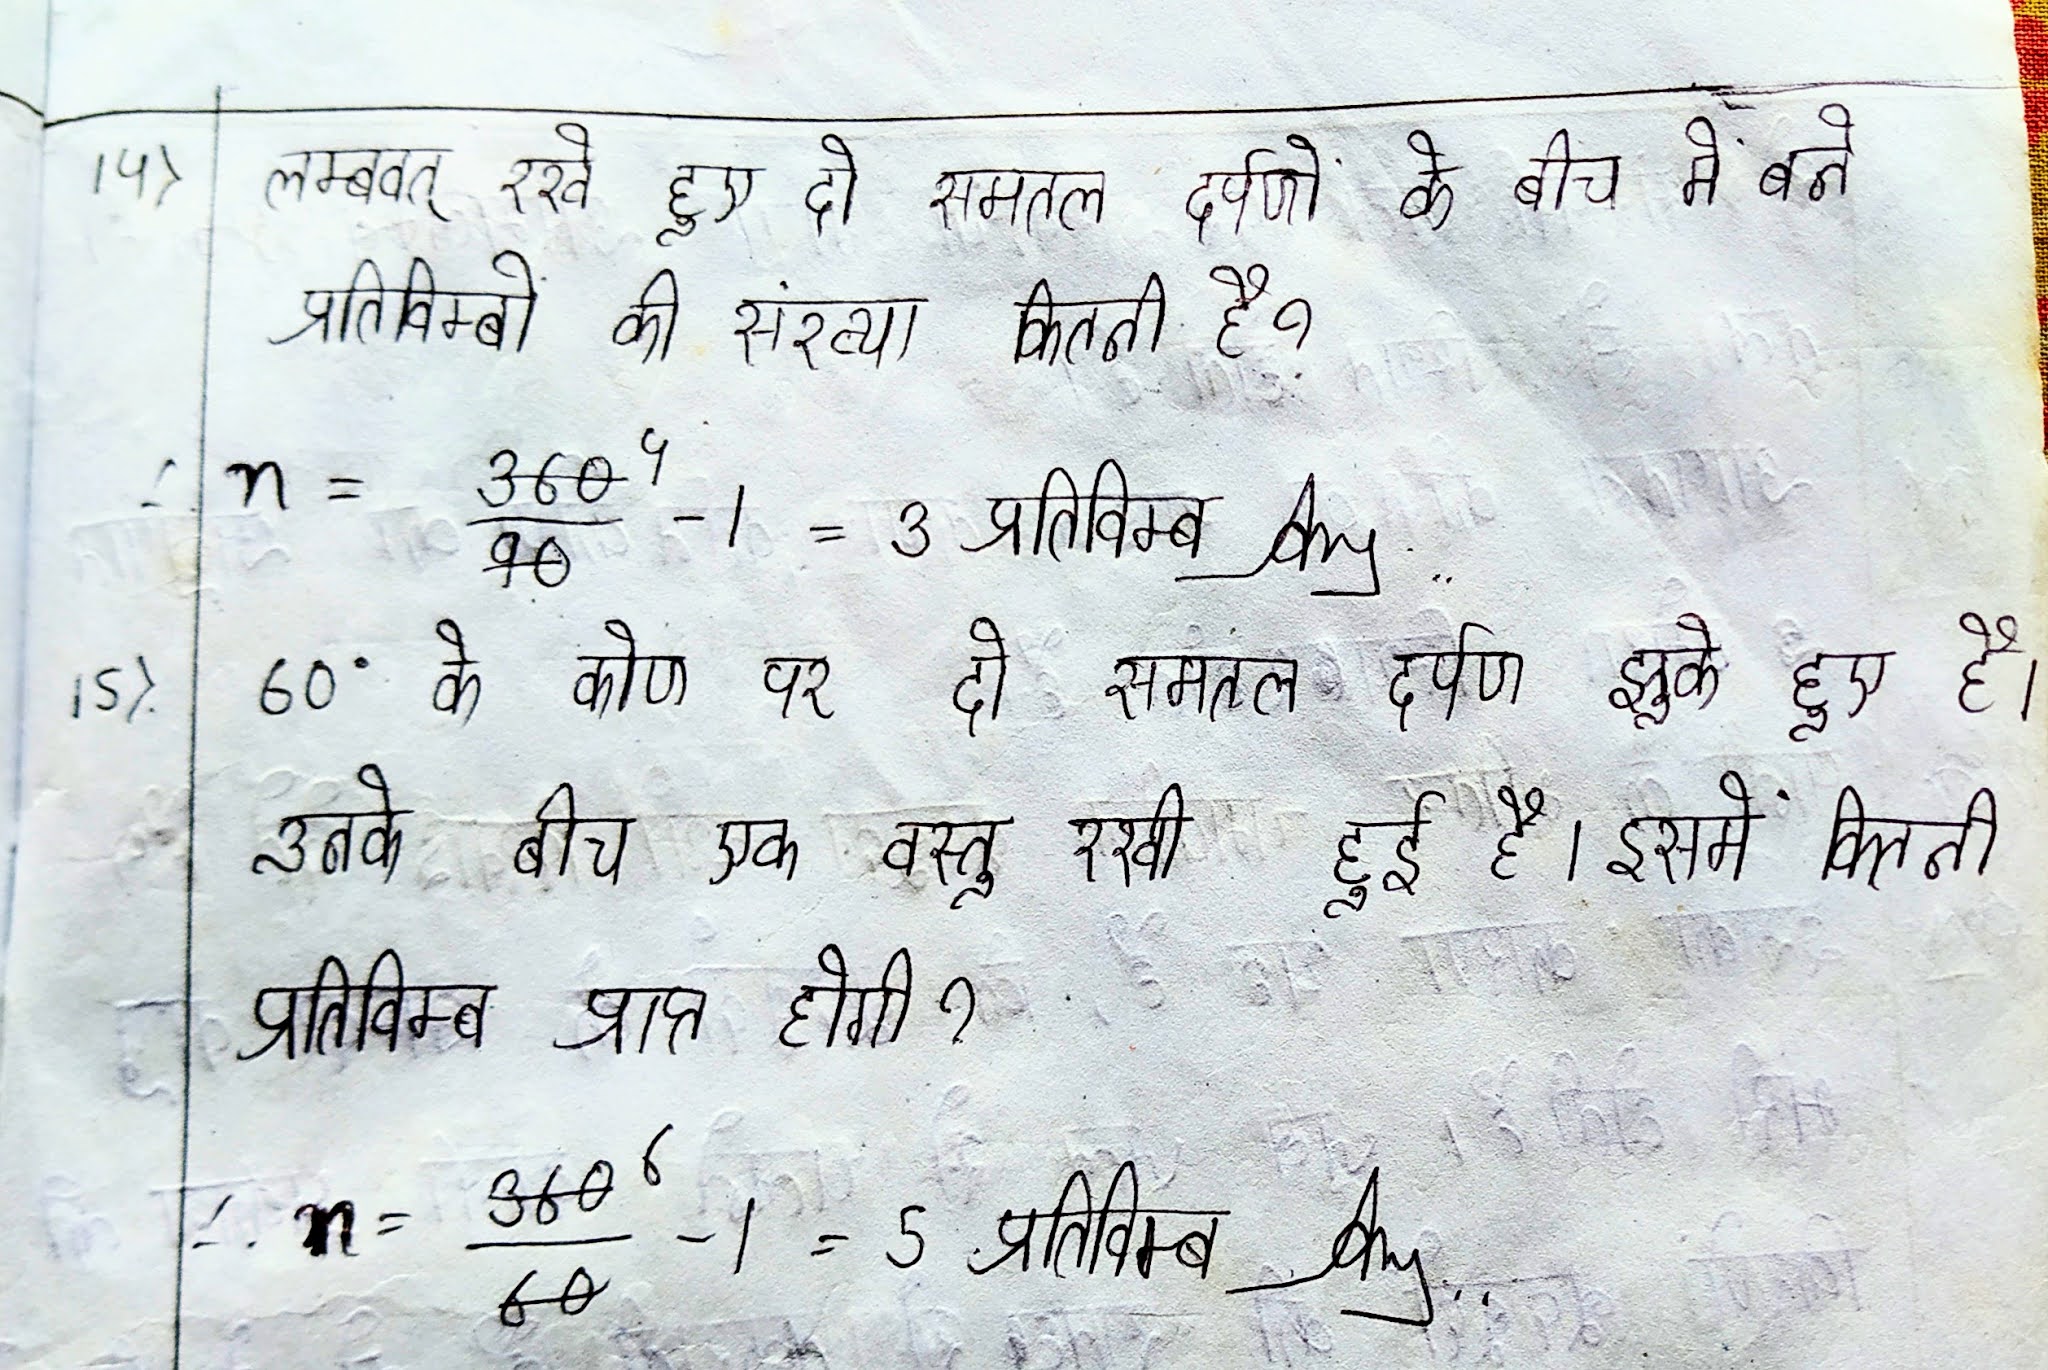 14> लम्बवत् रखे हुए दो समतल दर्पणों के बीच में बने
प्रतिविम्बों की संख्या कितनी है?
∴ n = 360/90 4 - 1 = 3 प्रतिविम्ब Ans..
15>. 60° के कोण पर दो समतल दर्पण झुके हुए है।
उनके बीच एक वस्तु रखी हुई है। इसमें कितनी
प्रतिविम्ब प्राप्त होगी?
∴ n = 360/60 6 - 1 = 5 प्रतिविम्ब Ans..